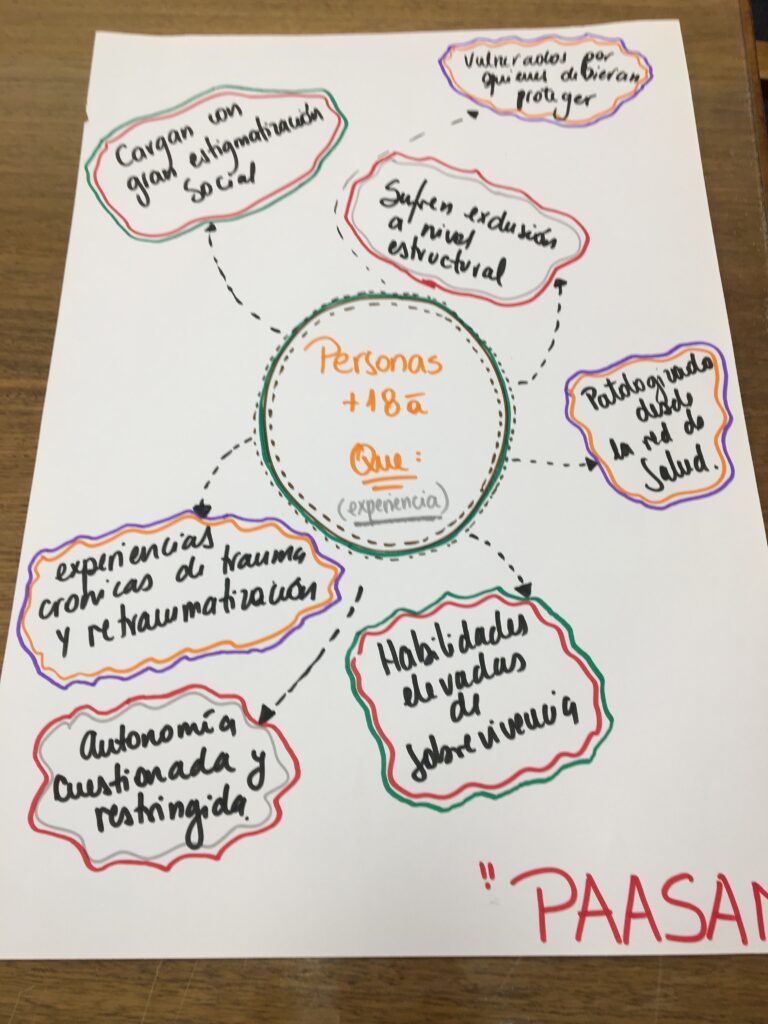 Personas
+18ā
Que:
(experiencia)
Cargan con
gran estigmatización
social
Vulnerados por
quienes debieran
proteger
Sufren exclusión
a nivel
estructural
Patologizado
desde
la red de
Salud.
experiencias
crónicas de trauma
y retraumatización
Habilidades
elevadas
de
sobrevivencia
Autonomía
cuestionada y
restringida.
"PAASAN